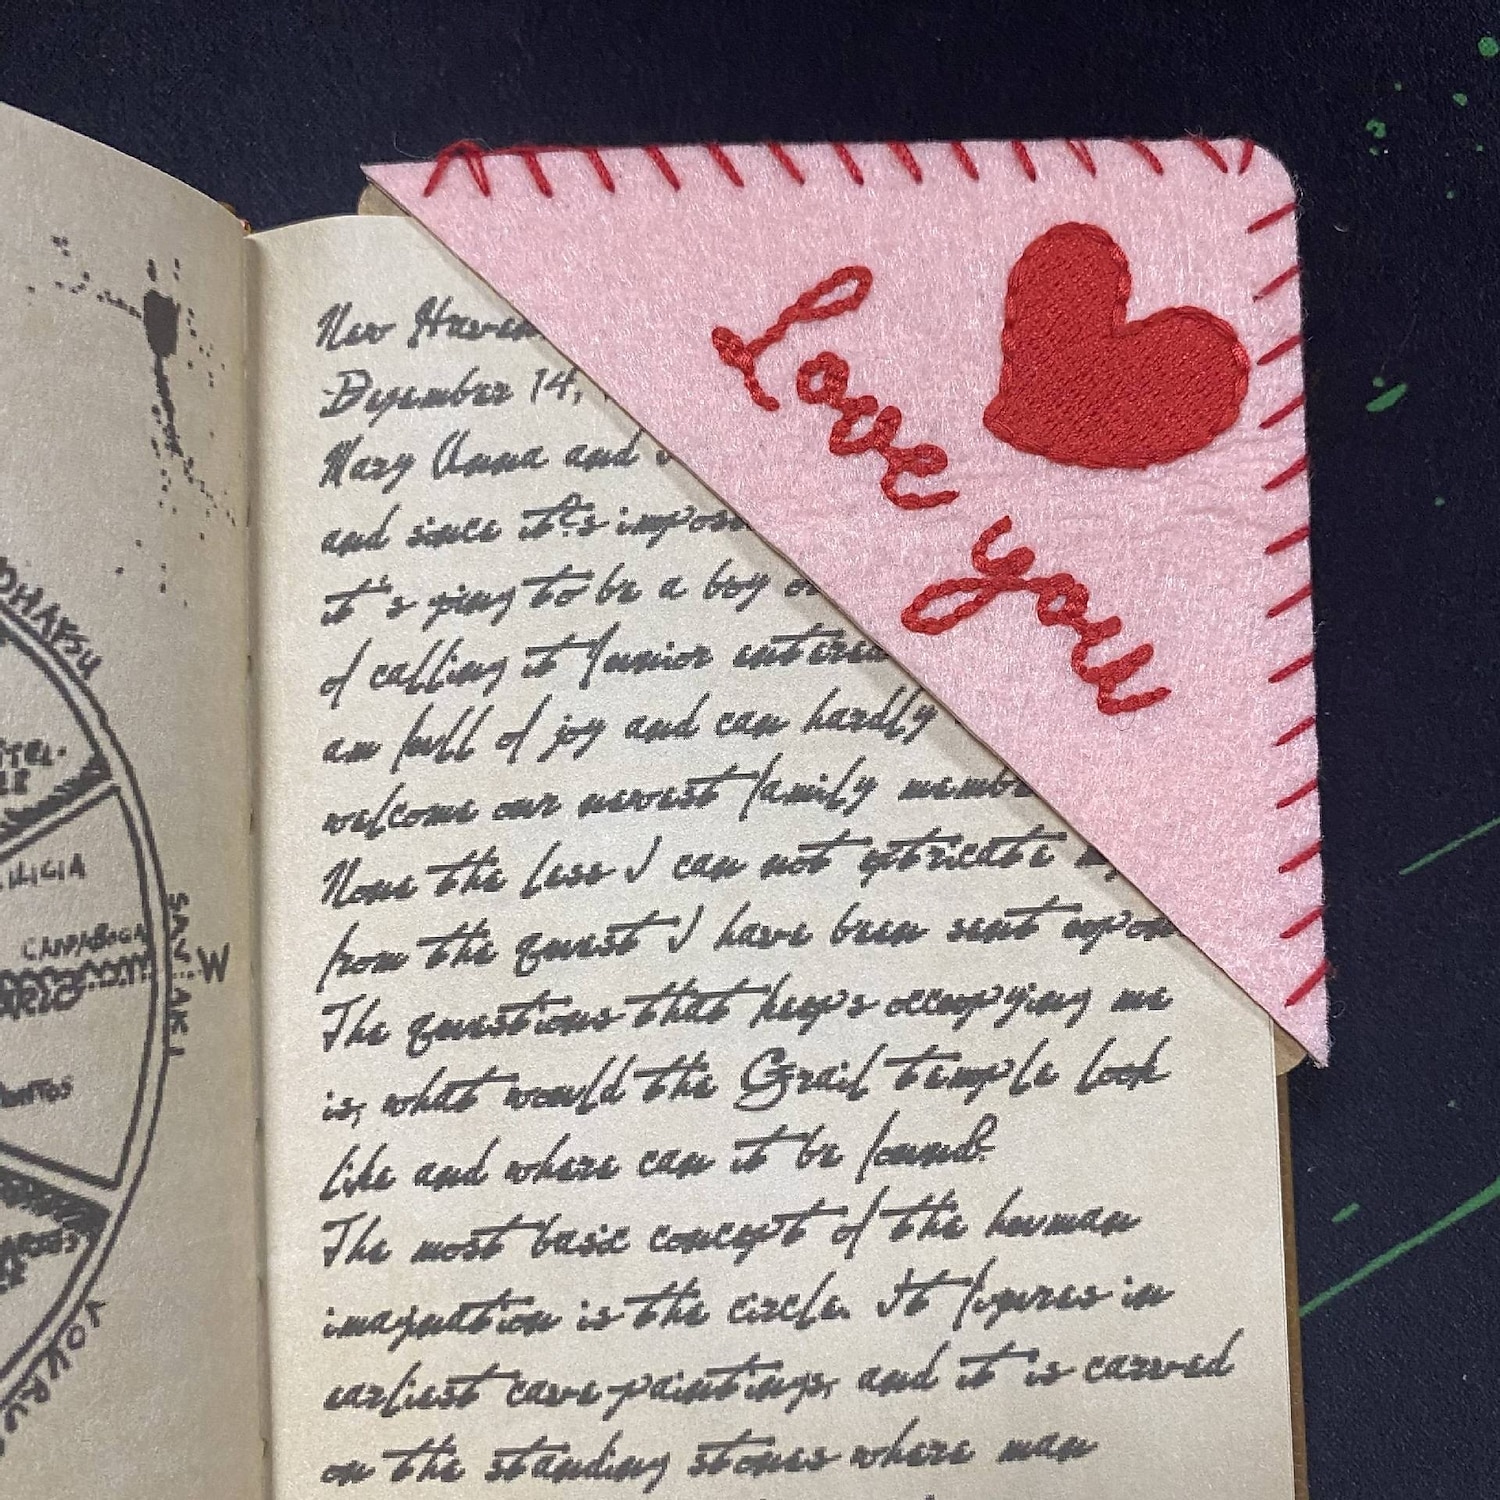 OHARSU
ILICIA
CAPPADOCIA
W
love you
New Haven
December 14,
Mary Anna and
and since it's
it's going to be a boy or
of calling it Junior
am full of joy and can hardly
welcome our newest family
None the less I can not extricate
from the quest I have been sent upon
The questions that keeps occupying me
is, what would the Grail temple look
like and where can it be found?
The most basic concept of the human
imagination is the circle. It figures in
earliest cave-paintings, and it is carved
on the standing stones where man